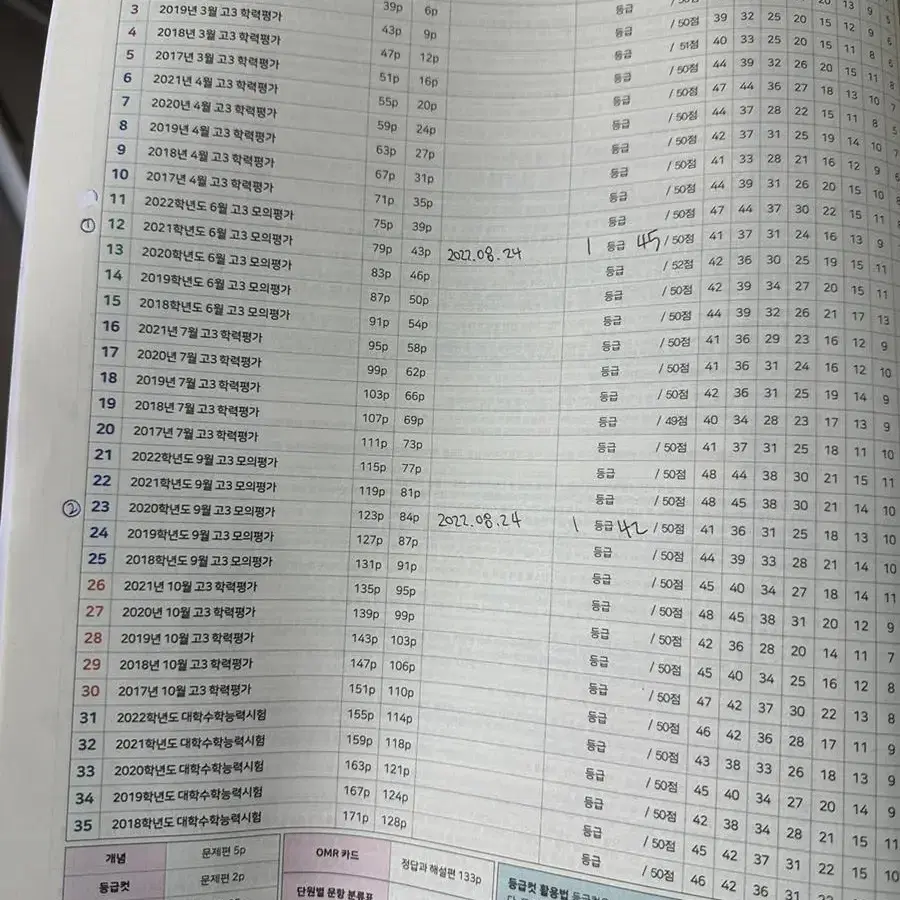 39p 6p 등급
3 2019년 3월 고3 학력평가 43p 9p 등급 / 50점 39 32 25 20 15 12 9 5
4 2018년 3월 고3 학력평가 47p 12p 등급 / 51점 40 33 25 20 15 11 8 5
5 2017년 3월 고3 학력평가 51p 16p 등급 / 50점 44 39 32 26 20 15 11 8
6 2021년 4월 고3 학력평가 55p 20p 등급 / 50점 47 44 36 27 18 13 10 7
7 2020년 4월 고3 학력평가 59p 24p 등급 / 50점 44 37 28 22 15 11 8 5
8 2019년 4월 고3 학력평가 63p 27p 등급 / 50점 42 37 31 25 19 14 10 7
9 2018년 4월 고3 학력평가 67p 31p 등급 / 50점 41 33 28 21 16 12 9
10 2017년 4월 고3 학력평가 71p 35p 등급 / 50점 44 39 31 26 20 15 10
11 2022학년도 6월 고3 모의평가 75p 39p 등급 / 50점 47 44 37 30 22 15 11
① 12 2021학년도 6월 고3 모의평가 79p 43p 2022.08.24 1 등급 45 / 50점 41 37 31 24 16 13 9
13 2020학년도 6월 고3 모의평가 83p 46p 등급 / 52점 42 36 30 25 19 15 11
14 2019학년도 6월 고3 모의평가 87p 50p 등급 / 50점 42 39 34 27 20 15 11
15 2018학년도 6월 고3 모의평가 91p 54p 등급 / 50점 44 39 32 26 21 17 13
16 2021년 7월 고3 학력평가 95p 58p 등급 / 50점 41 36 29 23 16 12 9
17 2020년 7월 고3 학력평가 99p 62p 등급 / 50점 41 36 31 24 16 12 10
18 2019년 7월 고3 학력평가 103p 66p 등급 / 50점 42 36 31 25 19 14 9
19 2018년 7월 고3 학력평가 107p 69p 등급 / 49점 40 34 28 23 17 13 9
20 2017년 7월 고3 학력평가 111p 73p 등급 / 50점 41 37 31 25 18 11 10
21 2022학년도 9월 고3 모의평가 115p 77p 등급 / 50점 48 44 38 30 21 15 11
22 2021학년도 9월 고3 모의평가 119p 81p 등급 / 50점 48 45 38 30 21 14 10
② 23 2020학년도 9월 고3 모의평가 123p 84p 2022.08.24 1 등급 42 / 50점 41 36 31 25 18 13 10
24 2019학년도 9월 고3 모의평가 127p 87p 등급 / 50점 44 39 33 28 21 14 10
25 2018학년도 9월 고3 모의평가 131p 91p 등급 / 50점 45 40 34 27 18 14 11
26 2021년 10월 고3 학력평가 135p 95p 등급 / 50점 48 45 38 31 20 12 9
27 2020년 10월 고3 학력평가 139p 99p 등급 / 50점 42 36 28 20 14 11 7
28 2019년 10월 고3 학력평가 143p 103p 등급 / 50점 45 40 34 25 16 12 8
29 2018년 10월 고3 학력평가 147p 106p 등급 / 50점 47 42 37 30 22 13 8
30 2017년 10월 고3 학력평가 151p 110p 등급 / 50점 46 42 36 28 17 11 9
31 2022학년도 대학수학능력시험 155p 114p 등급 / 50점 43 38 33 26 18 13 9
32 2021학년도 대학수학능력시험 159p 118p 등급 / 50점 45 40 34 27 20 14 9
33 2020학년도 대학수학능력시험 163p 121p 등급 / 50점 42 38 34 28 21 15 11
34 2019학년도 대학수학능력시험 167p 124p 등급 / 50점 45 42 37 31 22 15 10
35 2018학년도 대학수학능력시험 171p 128p 등급 / 50점 46 42 36 31
개념 문제편 5p
등급컷 문제편 2p
OMR 카드 정답과 해설편 133p
단원별 문항 분류표
등급컷 활용법